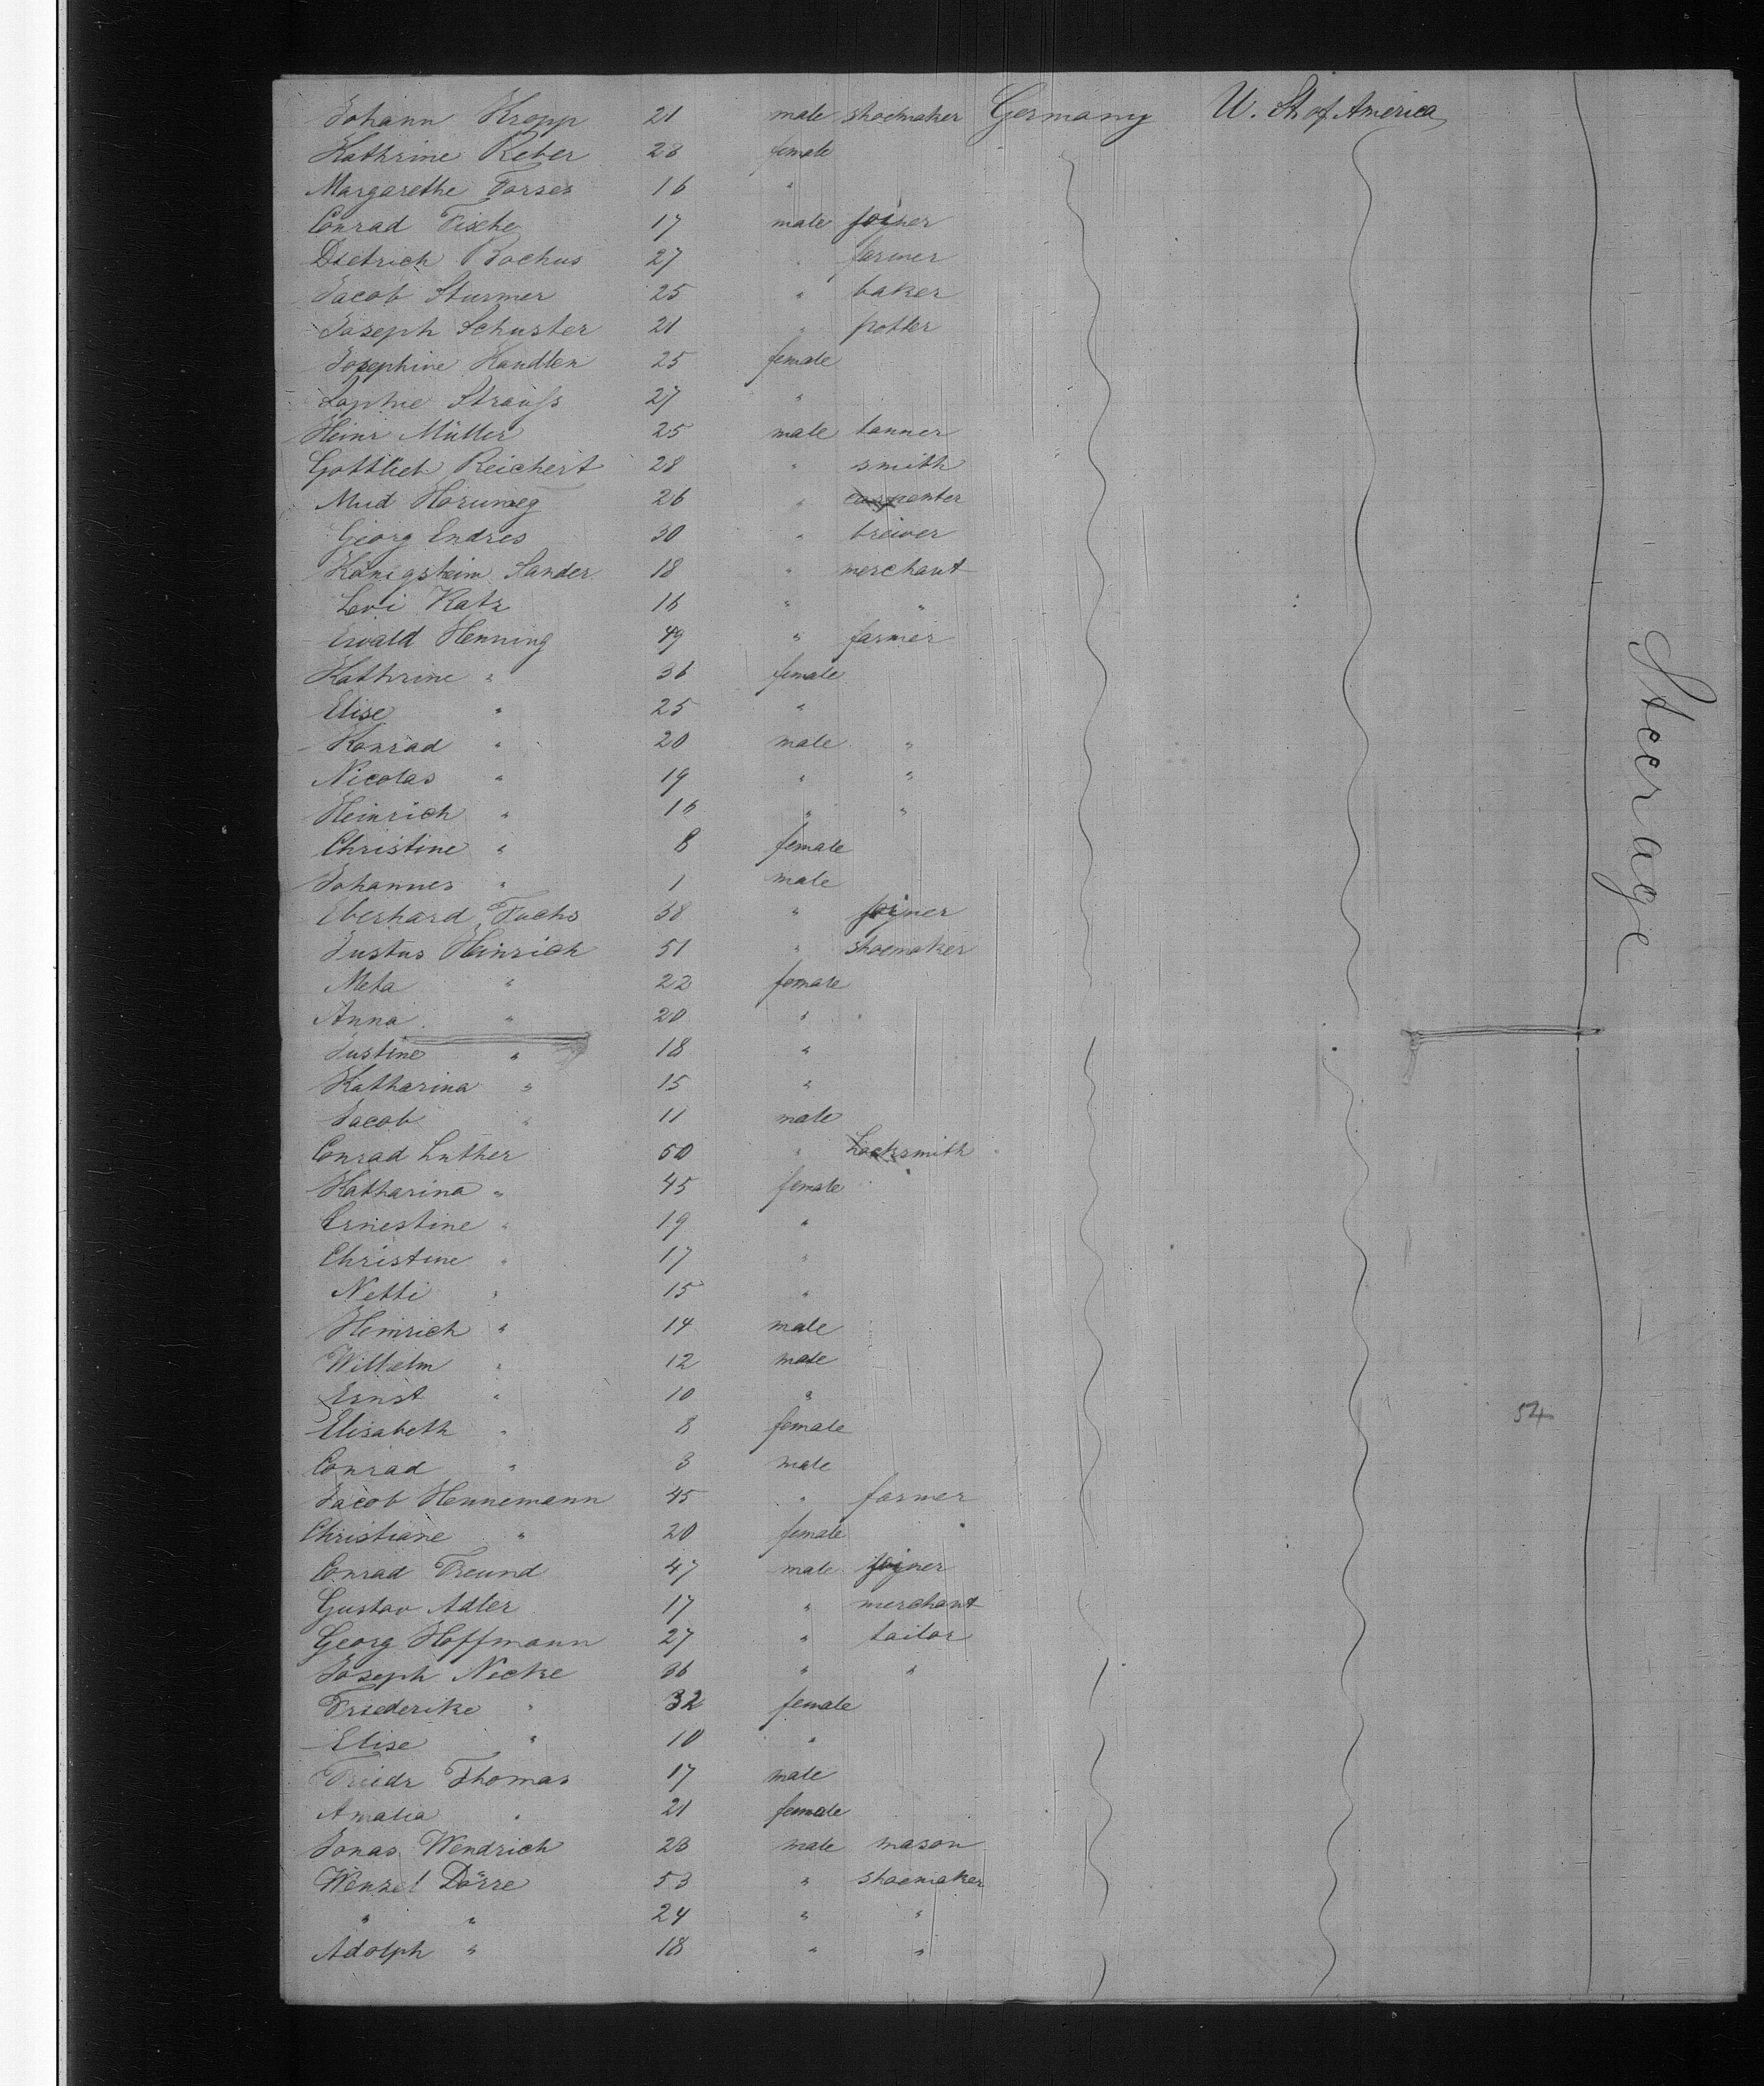 Johann Kropp 21 male shoemaker Germany U. St. of America
Kathrine Reber 28 female
Margarethe 16 "
Conrad Fische 17 male joiner
Dietrich Bochus 27 " farmer
Jacob Sturmer 25 " baker
Joseph Schuster 21 " potter
Josephine Handlen 25 female
Sophie Strauss 27 "
Heinr Müller 25 male tanner
Gottlieb Reichert 28 " smith
26 " carpenter
Georg Endres 30 " breiver
Königsheim Sander 18 " merchant
Levi Katz 16 " "
Ewald Henning 49 " farmer
Kathrine " 36 female
Elise " 25 "
Konrad " 20 male "
Nicolas " 19 " "
Heinrich " 16 " "
Christine " 8 female
Johannes " 1 male
Eberhard Fuchs 38 " joiner
Justus Heinrich 51 " shoemaker
Meta " 22 female
Anna " 20 "
Justine " 18 "
Katharina " 15 "
Jacob " 11 male
Conrad Luther 50 " Locksmith
Katharina " 45 female
Ernestine " 19 "
Christine " 17 "
Netti " 15 "
Heinrich " 14 male
Wilhelm " 12 male
Ernst " 10 "
Elisabeth " 8 female
Conrad " 3 male
Jacob Hennemann 45 " farmer
Christiane " 20 female
Conrad Freund 47 male joiner
Gustav Adler 17 " merchant
Georg Hoffmann 27 " tailor
Joseph Necke 36 " "
Friederike " 32 female
Elise " 10 "
Friedr Thomas 17 male
Amalia " 21 female
Jonas Wendrich 28 male mason
Wenzel Dörre 53 " shoemaker
" " 24 " "
Adolph " 18 " "
Steerage
54